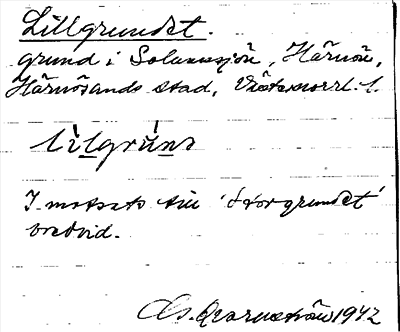 Lillgrundet.
grund i Solumsjön, Härnön,
Härnösands stad, Västernorrl. l.
lìlgrún̄
I motsats till 'Storgrundet'
bredvid.
1942